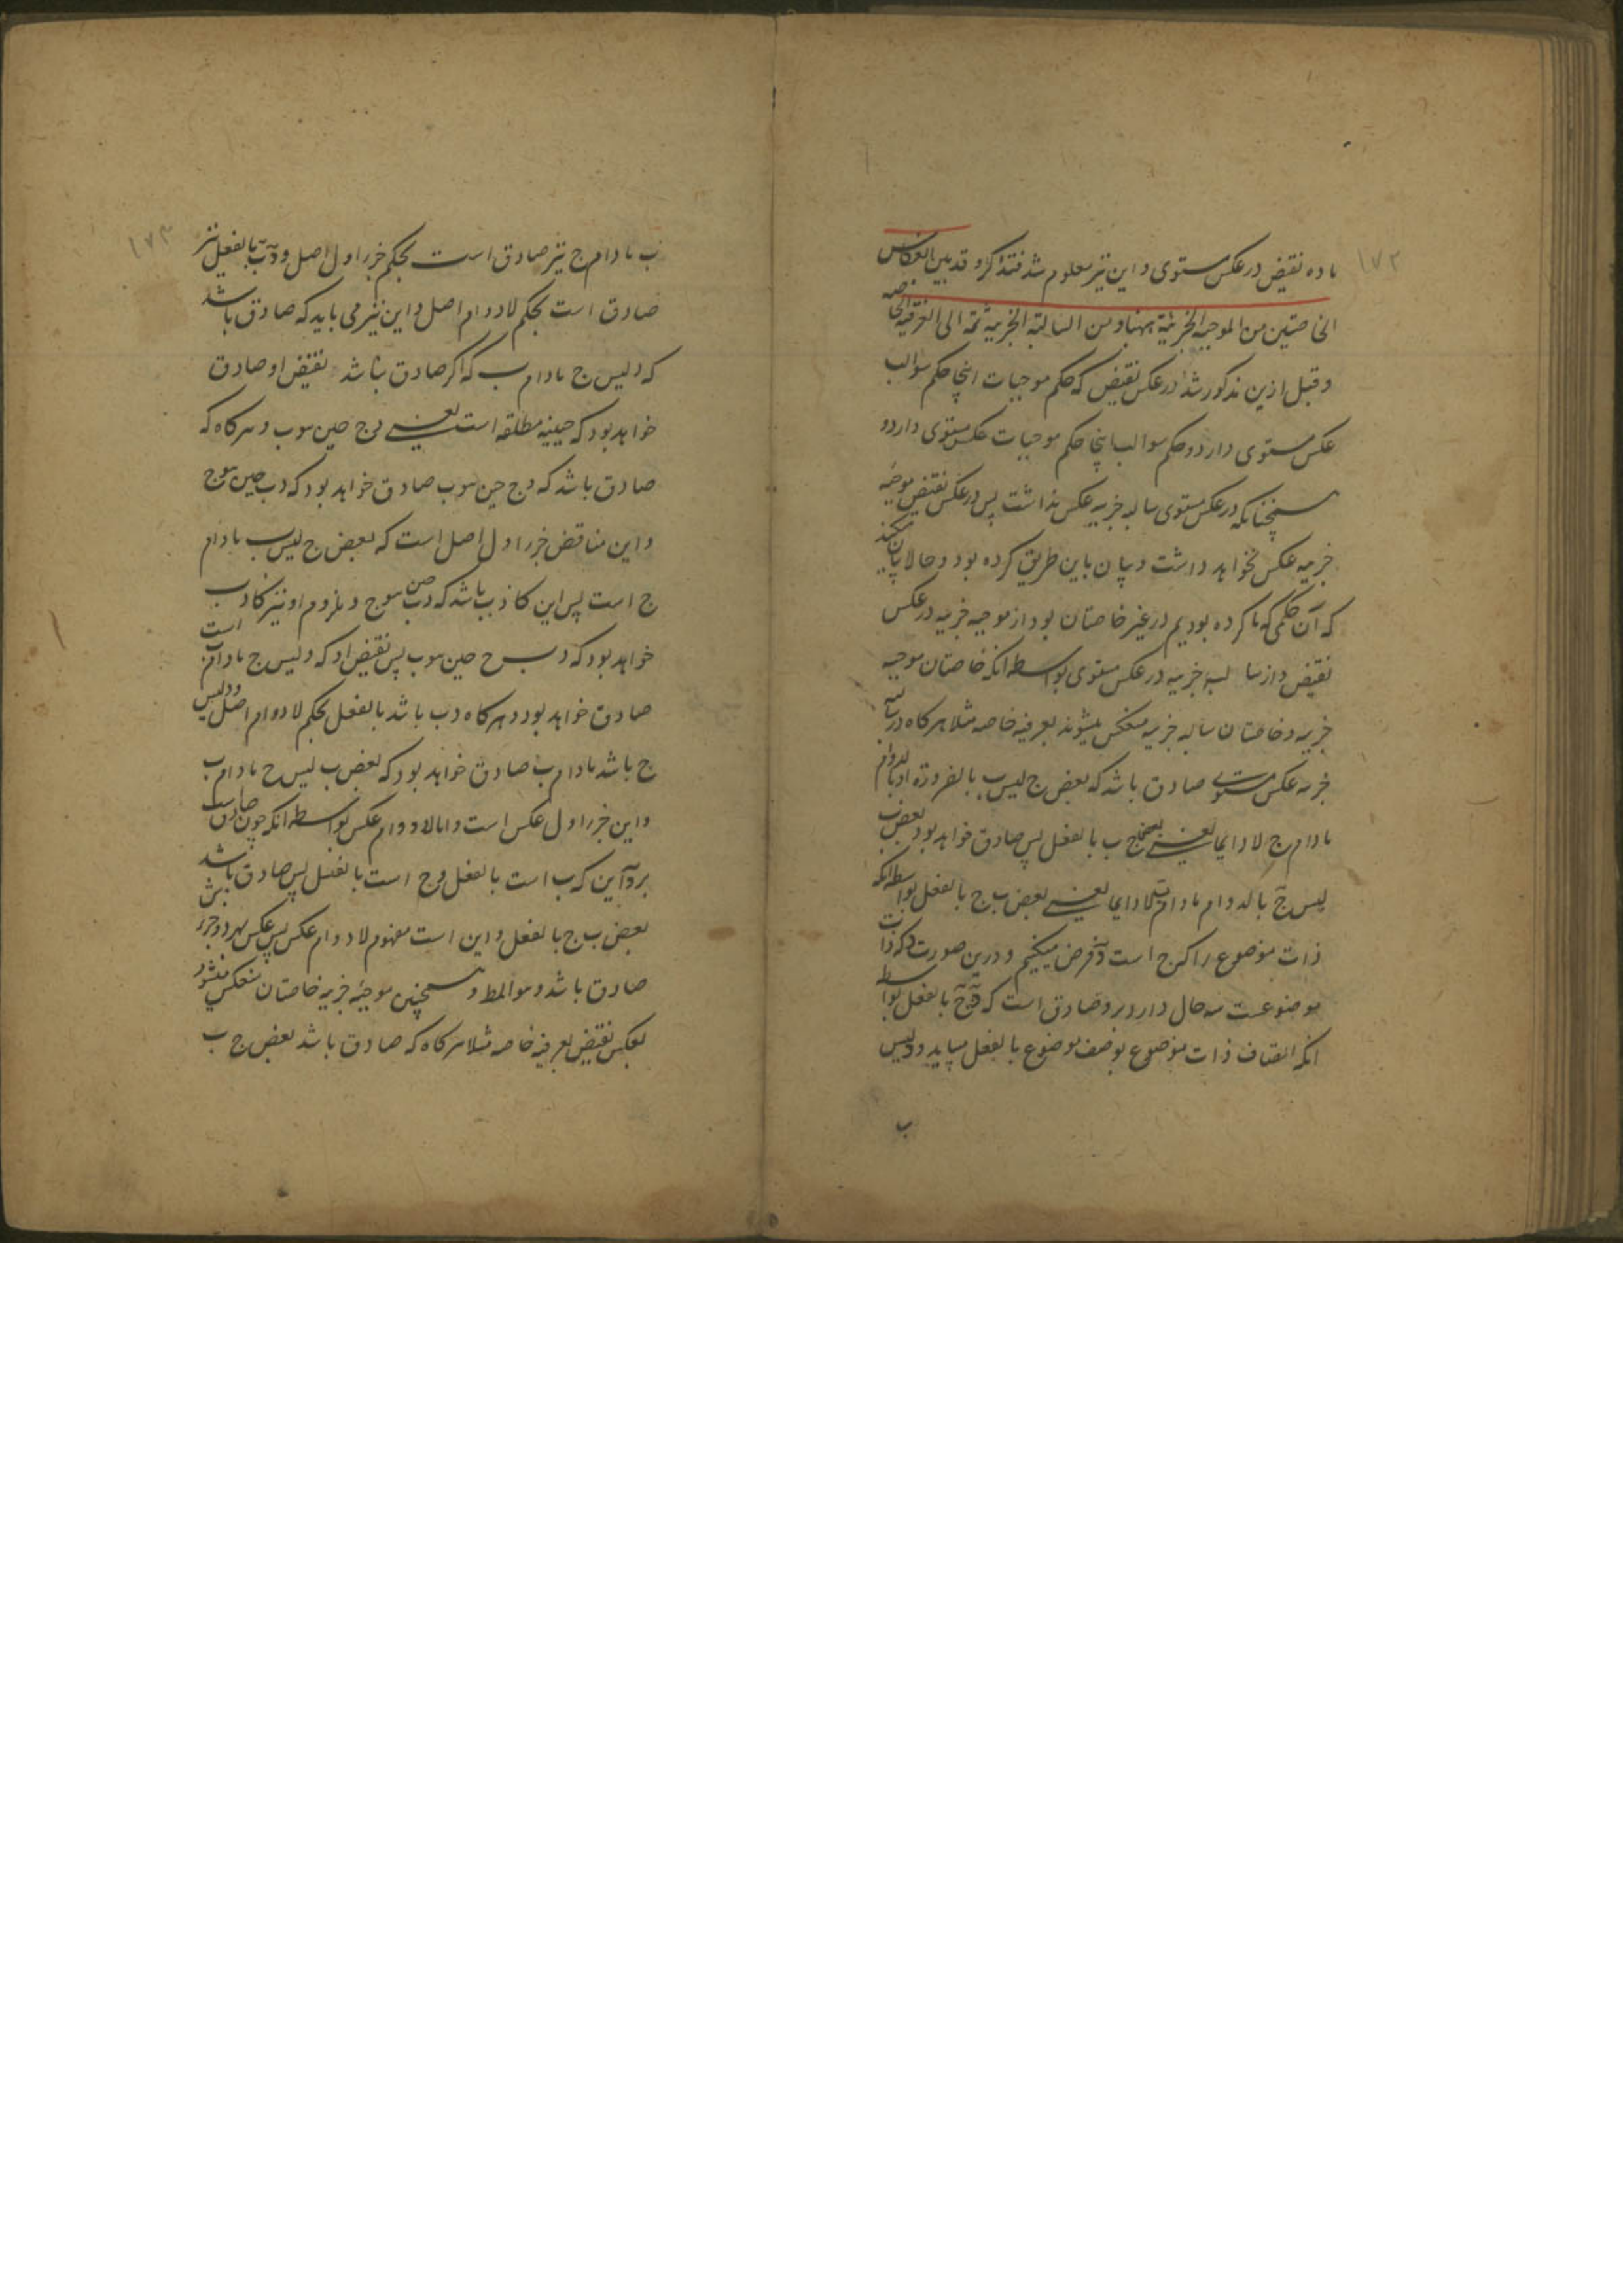 ۱۷۲
ماده نقیض در عکس مستوی و این نیز معلوم شد فتذکر و قد بین انعکاس
الخاصتین من الموجبة الجزئیة ههنا و من السالبة الجزئیة ثمه الی العرفیة الخاصه
و قبل ازین مذکور شد در عکس نقیض که حکم موجبات اینجا حکم سوالب
عکس مستوی دارد و حکم سوالب اینجا حکم موجبات عکس مستوی دارد و
همچنانکه در عکس مستوی سالبه جزییه عکس نداشت پس در عکس نقیض موجبه
جزییه عکس نخواهد داشت و بیان باین طریق کرده بود و حالا بیان میکند
که آن حکمی که ما کرده بودیم در غیر خاصتان بود از موجبه جزییه در عکس
نقیض و از سالبه جزییه در عکس مستوی بواسطه انکه خاصتان موجبه
جزییه و خاصتان سالبه جزییه منعکس میشوند بعرفیه خاصه مثلا هرکاه در سالبه
جزییه عکس مستوی صادق باشد که بعض ج لیس ب بالضرورة او بالدوام
مادام ج لا دایما یعنی بعض ج ب بالفعل پس صادق خواهد بود بعض ب
لیس ج بالدوام مادام ب لا دایما یعنی بعض ب ج بالفعل بواسطه انکه
ذات موضوع را که ج است د فرض میکنیم و درین صورت د که ذات
موضوعست سه حال دارد بر و صادق است که د ج بالفعل بواسطه
انکه اتصاف ذات موضوع بوصف موضوع بالفعل میباید و د لیس
ب
۱۷۳
ب مادام ج نیز صادق است بحکم جزر اول اصل و د ب بالفعل نیز
صادق است بحکم لادوام اصل و این نیز می باید که صادق باشد
که د لیس ج مادام ب که اکر صادق نباشد نقیض او صادق
خواهد بود که حینیه مطلقه است یعنی د ج حین هو ب و هرکاه که
صادق باشد که د ج حین هو ب صادق خواهد بود که د ب حین هو ج
و این مناقض جزر اول اصل است که بعض ج لیس ب مادام
ج است پس این کاذب باشد که د ب حین هو ج و ملزوم او نیز کاذب
خواهد بود که د ج حین هو ب پس نقیض او که د لیس ج مادام ب است
صادق خواهد بود و هرکاه د ب باشد بالفعل بحکم لادوام اصل و د لیس
ج باشد مادام ب صادق خواهد بود که بعض ب لیس ج مادام ب
و این جزر اول عکس است و اما لادوام عکس بواسطه انکه چون صادقست
بر د این که ب است بالفعل و ج است بالفعل پس صادق باشد
بعض ب ج بالفعل و این است مفهوم لادوام عکس پس عکس بهر دو جزر
صادق باشد و هو المط و همچنین موجبه جزییه خاصتان منعکس میشود
بعکس نقیض بعرفیه خاصه مثلا هرکاه که صادق باشد بعض ج ب